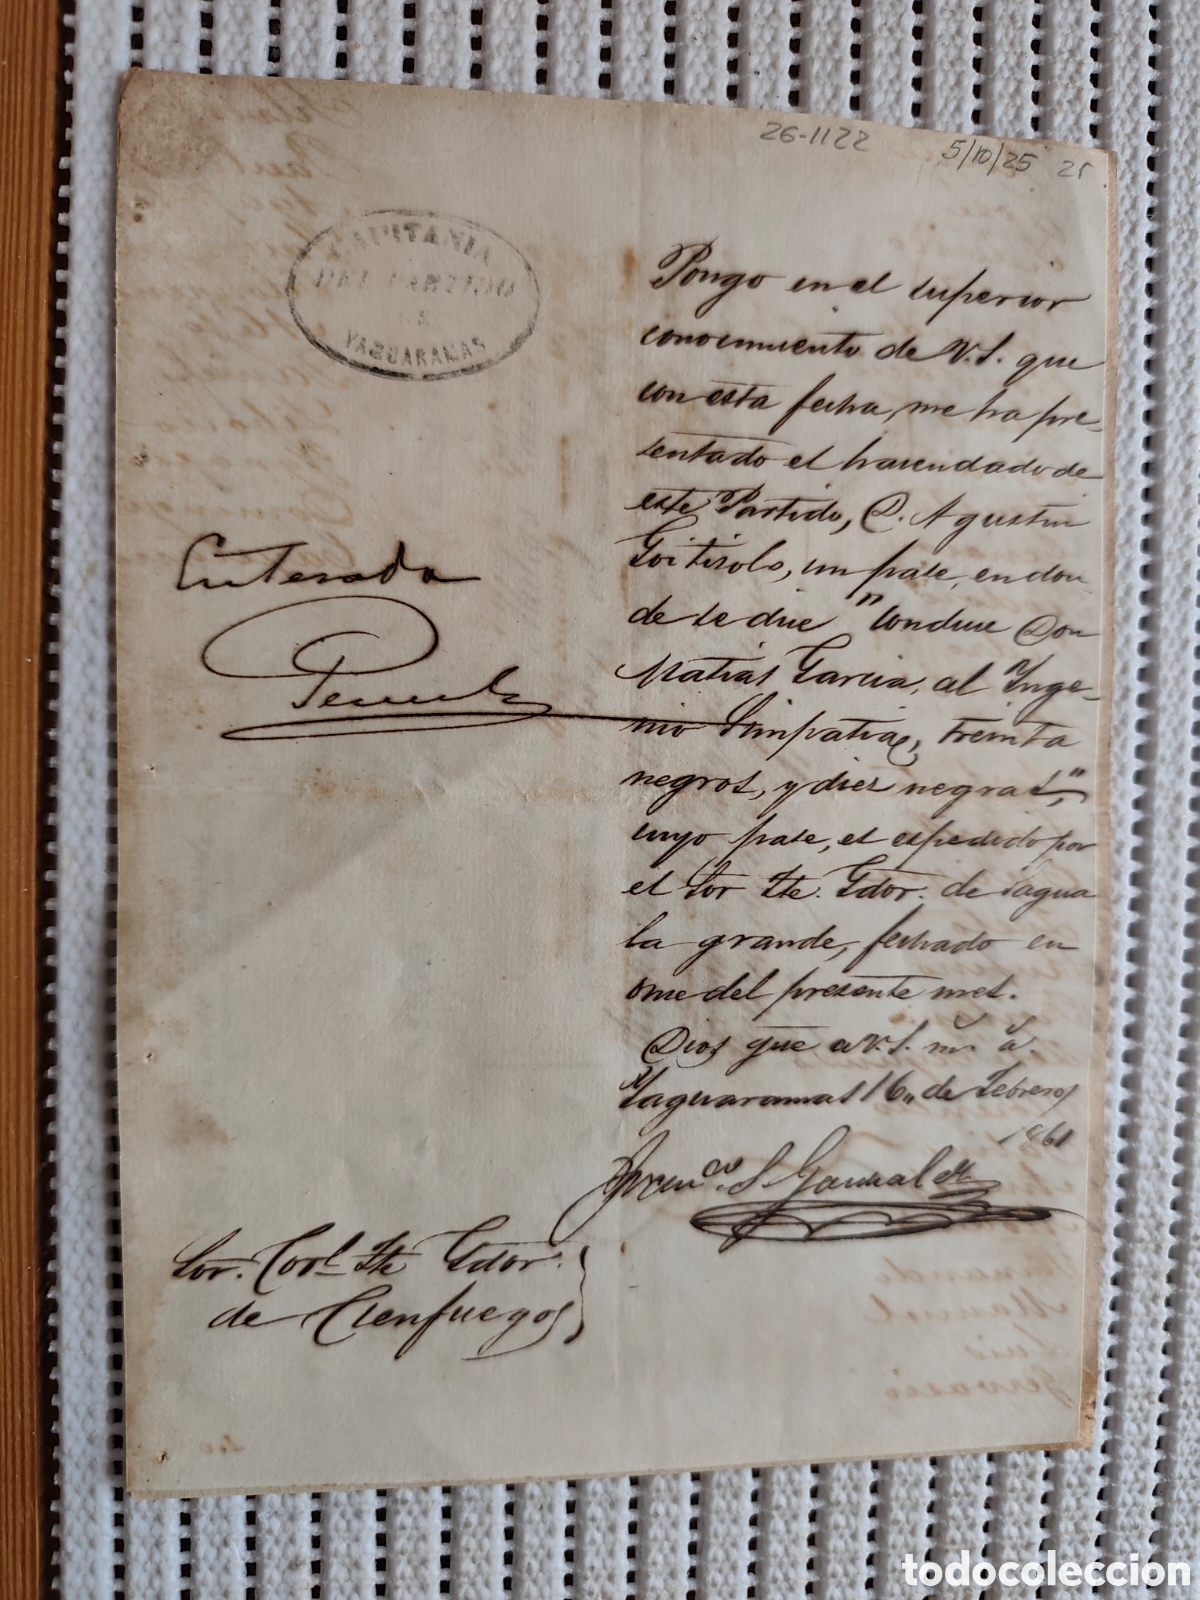 26-1122
5/10/25 25
CAPITANIA
DEL PARTIDO
DE
YAGUARAMAS
Pongo en el superior
conocimiento de V.S. que
con esta fecha, me ha pre-
sentado el hacendado de
este Partido, D. Agustin
Goitisolo, un pase, en don
de se dice "Conduce Don
Matias Garcia, al Inge-
nio Simpatia, treinta
negros, y dies negras",
cuyo pase, es espedido por
el Sor Tte. Gdor. de Sagua
la grande, fechado en
once del presente mes.
Dios gue a V.S. m. a.
Yaguaramas 16,, de Febrero,
1861
S. Gonzal
Enterado
Sor. Corl. Tte Gdor.
de Cienfuegos
Manuel
Luis
Gervasio
todocoleccion